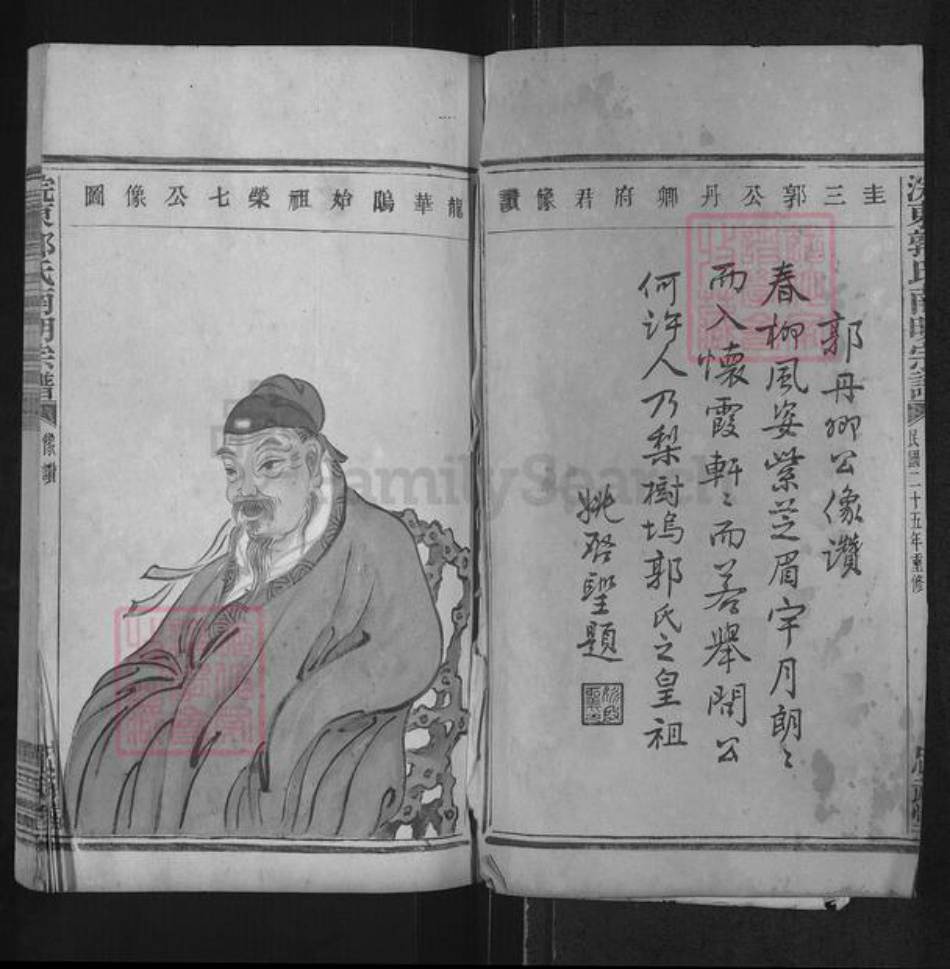 圭三郭公丹卿府君像讚
郭丹卿公像讚
春柳風姿紫芝眉宇月朗〻
而入懷霞軒〻而若舉問公
何許人乃梨樹塢郭氏之皇祖
姚啓聖題
浣東郭氏南明宗譜
民國二十五年重修
龍華隖始祖榮七公像圖
浣東郭氏南明宗譜
像讚
FamilySearch